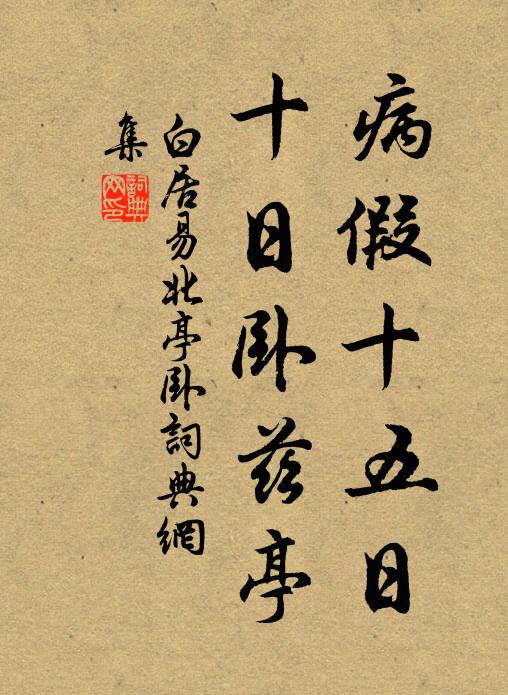 病假十五日
十日卧兹亭
白居易北亭卧詞典網
集
詞典
网印